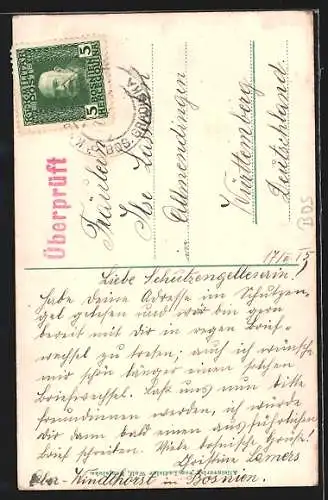 Überprüft
5 5
Fräulein
Ilse
in Allmendingen
Württemberg
Deutschland.
BDS
17/ 15
Liebe Schutzengelleserin!
Habe deine Adresse im Schutzen-
gel gelesen und wär bin gern
bereit mit dir in regen Brief-
wechsel zu treten; auch ich wünsche
mir schon länger einen solchen
Briefwechsel. Laß uns nun bitte
Freundinnen werden, ich würde
dir dann bald einen ausführlichen
Brief schreiben. Viele bosnische Grüße!
Christine Lamers
Windthorst in Bosnien.